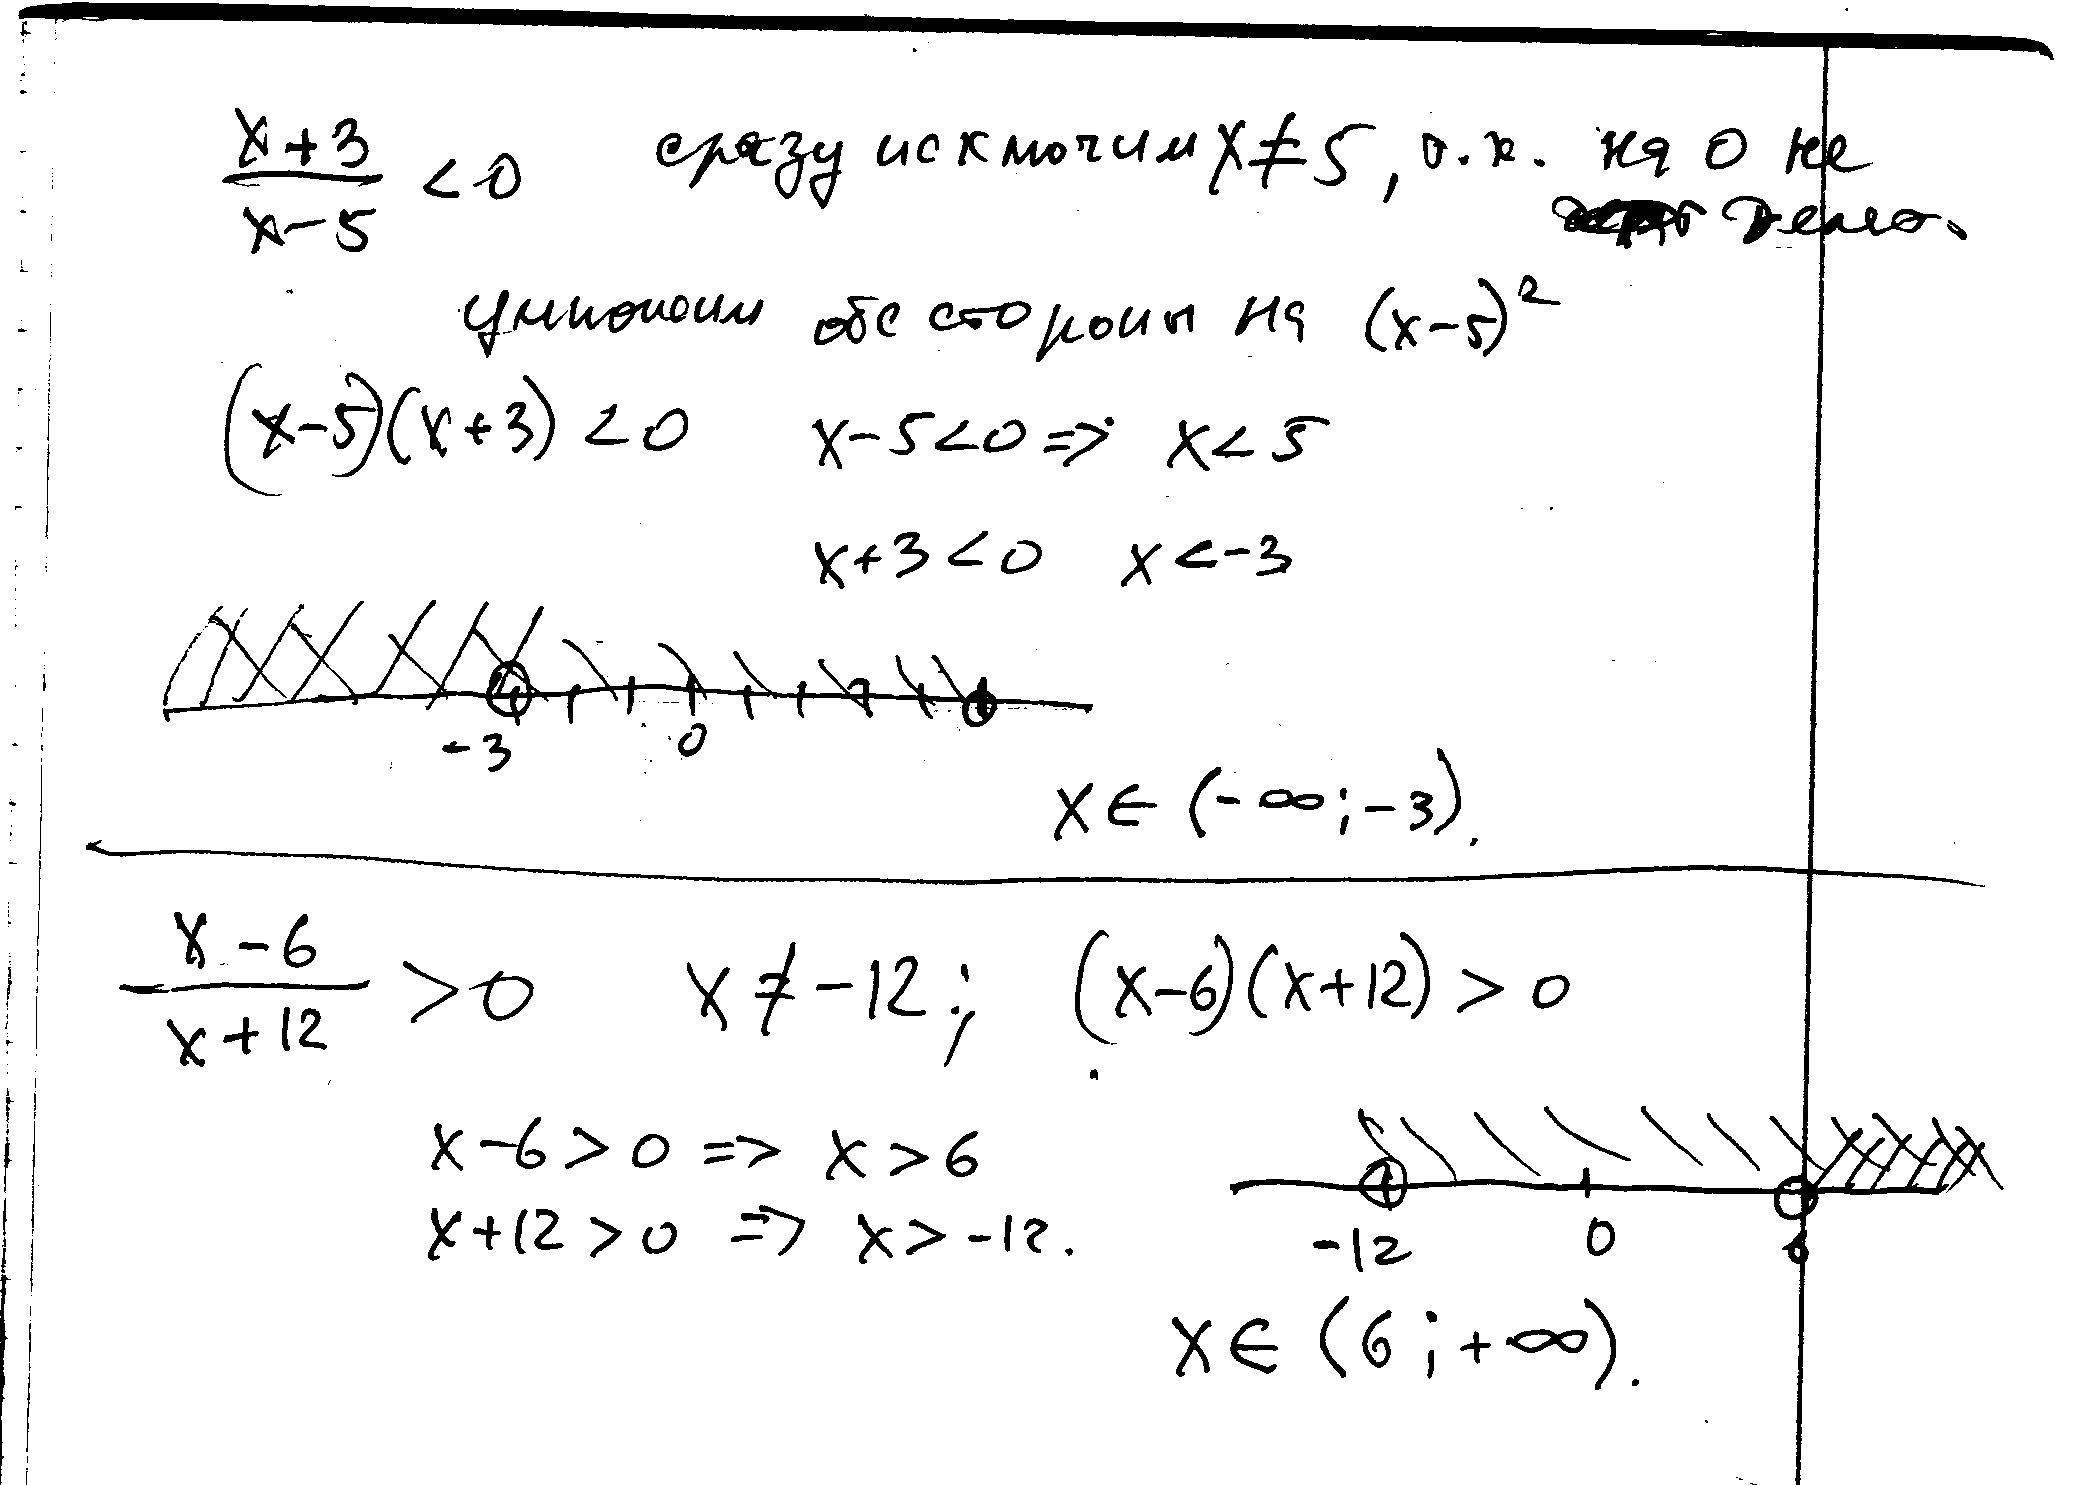 x+3
x-5 <0 сразу исключим x≠5, т.к. на 0 не
делят.
умножим обе стороны на (x-5)²
(x-5)(x+3)<0 x-5<0 => x<5
x+3<0 x<-3
-3 0
x∈(-∞;-3).
x-6
x+12 >0 x≠-12; (x-6)(x+12)>0
x-6>0 => x>6
x+12>0 => x>-12.
-12 0 6
x∈(6;+∞).